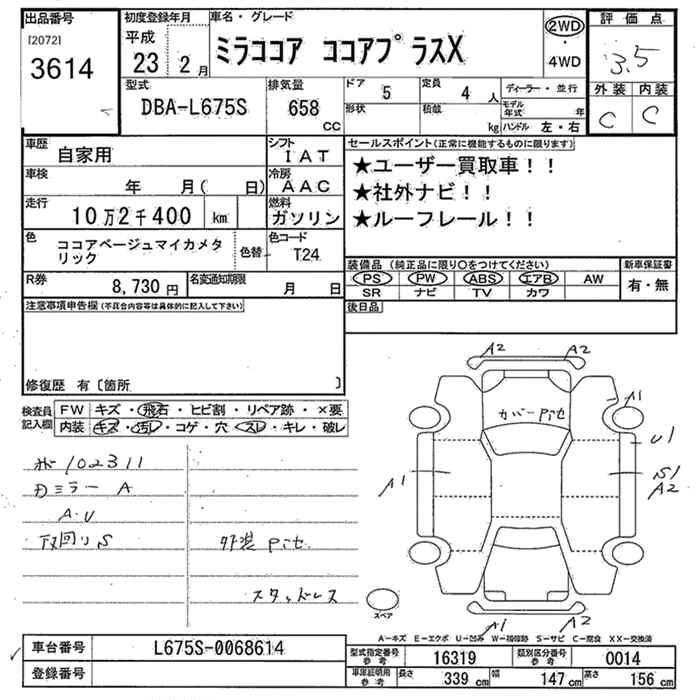 出品番号
[2072]
3614
初度登録年月
平成
23 2月
車名・グレード
ミラココア ココアプラスX
2WD
・
4WD
評価点
3.5
外装 内装
C C
型式
DBA-L675S
排気量
658
CC
ドア
5
定員
4人
形状
積載
kg
ディーラー・並行
モデル年式 年
ハンドル 左・右
車歴
自家用
シフト
IAT
車検
年 月( 日)
冷房
AAC
走行
10万2千400 km
燃料
ガソリン
色
ココアベージュマイカメタリック
色替
色コード
T24
R券
8,730円
名変通知期限
月 日
セールスポイント(正常に機能するものに限ります)
★ユーザー買取車!!
★社外ナビ!!
★ルーフレール!!
装備品 (純正品に限り○をつけてください)
PS PW ABS エアB AW
SR ナビ TV カワ
新車保証書
有・無
後日品
注意事項申告欄(不具合内容等は具体的に記入して下さい)
修復歴 有〔箇所 〕
検査員
記入欄
FW キズ・飛石・ヒビ割・リペア跡・×要
内装 キズ・汚レ・コゲ・穴・スレ・キレ・破レ
102311
ミラー A
A・U
下回りS
外装 Pit
スタッドレス
A2 A2
カバーPit
A1
U1
S1
A2
A1
A1 A2
スペア
A-キズ E-エクボ U-凹み W-補修跡 S-サビ C-腐食 XX-交換済
車台番号
L675S-0068614
登録番号
型式指定番号
参考
16319
類別区分番号
参考
0014
車庫証明用
参考
長さ
339cm
幅
147cm
高さ
156cm